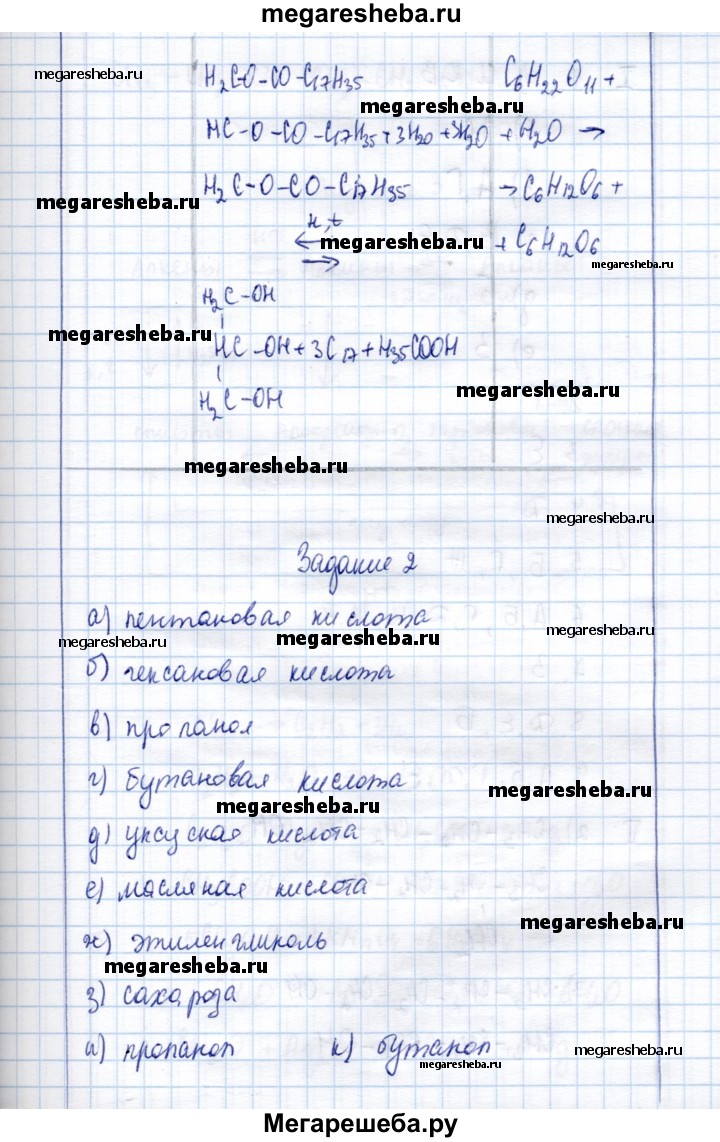 megaresheba.ru
megaresheba.ru
H₂C-O-CO-C₁₇H₃₅ C₆H₂₂O₁₁ +
megaresheba.ru
HC-O-CO-C₁₇H₃₅ + 3H₂O + 3H₂O + H₂O →
H₂C-O-CO-C₁₇H₃₅ → C₆H₁₂O₆ +
megaresheba.ru
H, t
← megaresheba.ru + C₆H₁₂O₆
→
megaresheba.ru
H₂C-OH
megaresheba.ru
HC-OH + 3C₁₇ + H₃₅COOH
megaresheba.ru
H₂C-OH
megaresheba.ru
megaresheba.ru
Задание 2
а) пентановая кислота
megaresheba.ru megaresheba.ru
б) гексановая кислота
в) пропанол
г) бутановая кислота
megaresheba.ru
megaresheba.ru
д) уксусная кислота
е) масляная кислота
megaresheba.ru
ж) этиленгликоль
megaresheba.ru
з) сахароза
и) пропанол к) бутанол
megaresheba.ru
megaresheba.ru
Мегарешеба.ру